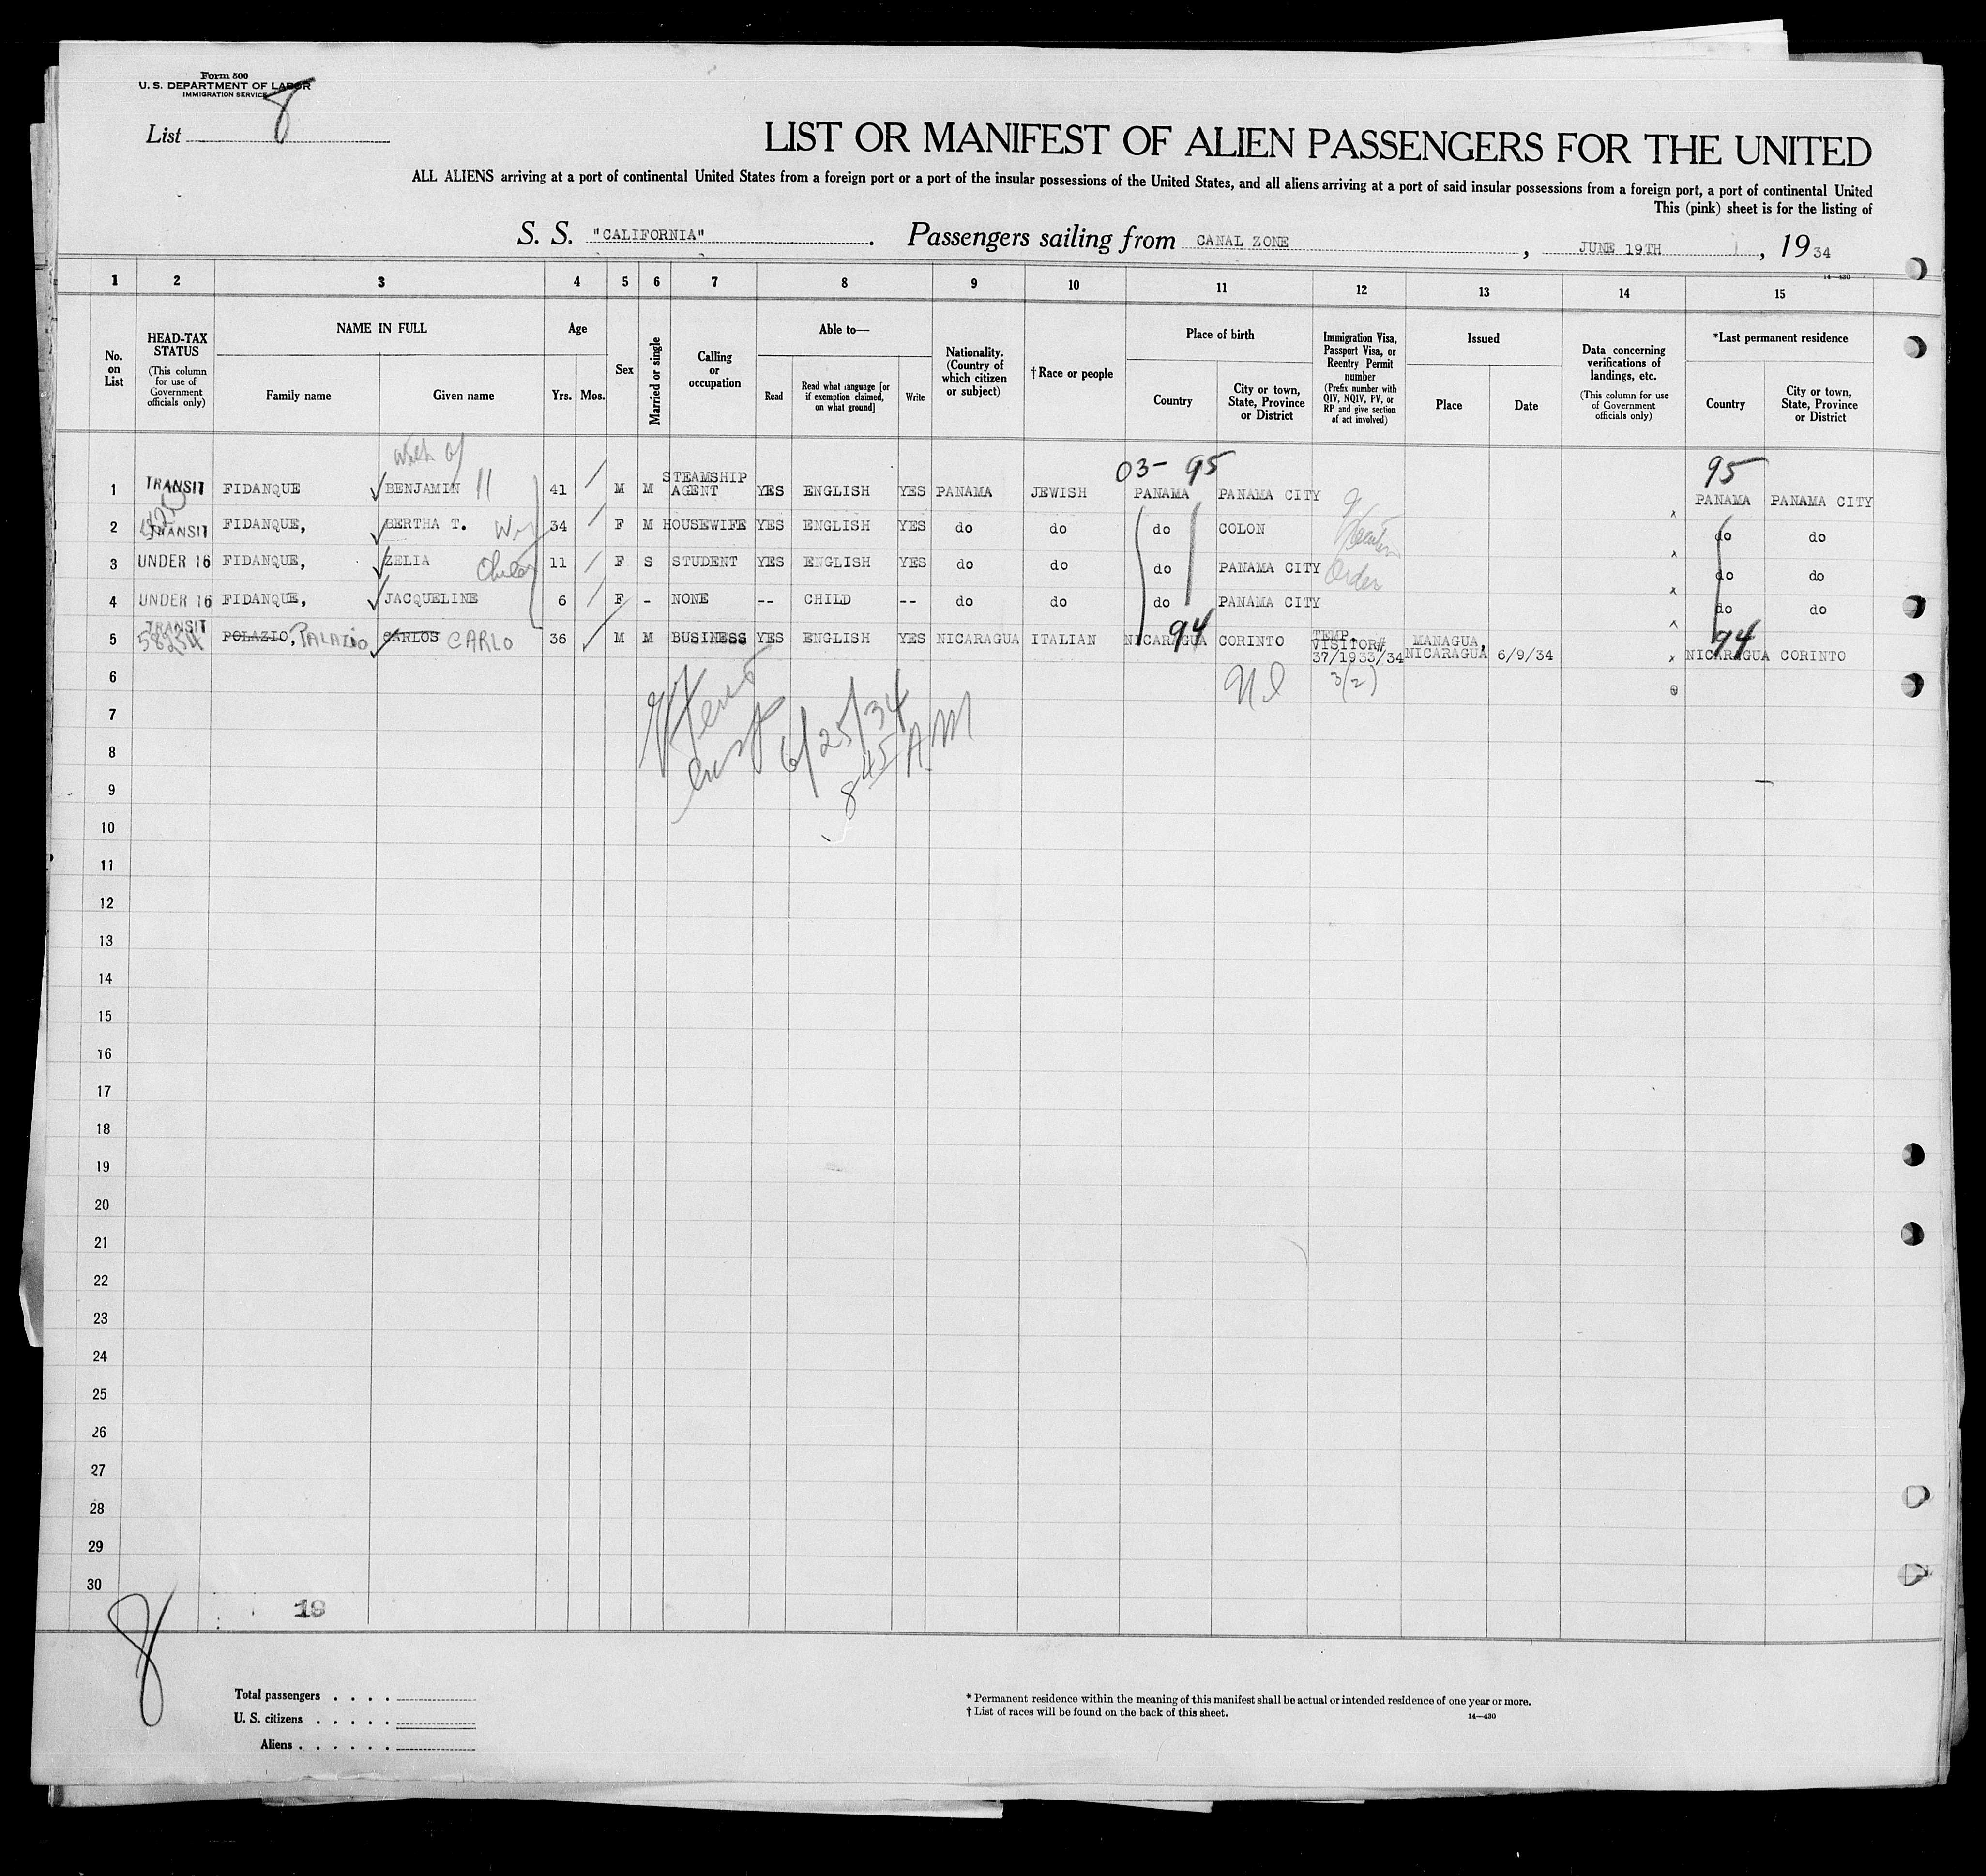 Form 500
U. S. DEPARTMENT OF LABOR
IMMIGRATION SERVICE
List 8
LIST OR MANIFEST OF ALIEN PASSENGERS FOR THE UNITED
ALL ALIENS arriving at a port of continental United States from a foreign port or a port of the insular possessions of the United States, and all aliens arriving at a port of said insular possessions from a foreign port, a port of continental United
This (pink) sheet is for the listing of
S. S. "CALIFORNIA". Passengers sailing from CANAL ZONE, JUNE 19TH, 1934
14—430
1 2 3 4 5 6 7 8 9 10 11 12 13 14 15
No. on List
HEAD-TAX STATUS (This column for use of Government officials only)
NAME IN FULL
Family name
Given name
Age
Yrs. Mos.
Sex
Married or single
Calling or occupation
Able to—
Read
Read what language [or if exemption claimed, on what ground]
Write
Nationality. (Country of which citizen or subject)
† Race or people
Place of birth
Country
City or town, State, Province or District
Immigration Visa, Passport Visa, or Reentry Permit number (Prefix number with QIV, NQIV, PV, or RP and give section of act involved)
Issued
Place
Date
Data concerning verifications of landings, etc. (This column for use of Government officials only)
*Last permanent residence
Country
City or town, State, Province or District
03- 95 95
1 TRANSIT FIDANQUE BENJAMIN 11 41 M M STEAMSHIP AGENT YES ENGLISH YES PANAMA JEWISH PANAMA PANAMA CITY PANAMA PANAMA CITY
2 TRANSIT FIDANQUE, BERTHA T. 34 F M HOUSEWIFE YES ENGLISH YES do do do COLON do do
3 UNDER 16 FIDANQUE, ZELIA 11 F S STUDENT YES ENGLISH YES do do do PANAMA CITY Order do do
4 UNDER 16 FIDANQUE, JACQUELINE 6 F - NONE -- CHILD -- do do do PANAMA CITY do do
5 TRANSIT 58254 POLAZIO, PALAZIO CARLOS CARLO 36 M M BUSINESS YES ENGLISH YES NICARAGUA ITALIAN NICARAGUA 94 CORINTO TEMP. VISITOR# 37/1933/34 MANAGUA, NICARAGUA 6/9/34 NICARAGUA 94 CORINTO
6 3(2)
7 6/25/34
8 8 45 AM
9
10
11
12
13
14
15
16
17
18
19
20
21
22
23
24
25
26
27
28
29
30
19
8
Total passengers . . . .
U. S. citizens . . . . .
Aliens . . . . . .
* Permanent residence within the meaning of this manifest shall be actual or intended residence of one year or more.
† List of races will be found on the back of this sheet.
14—430